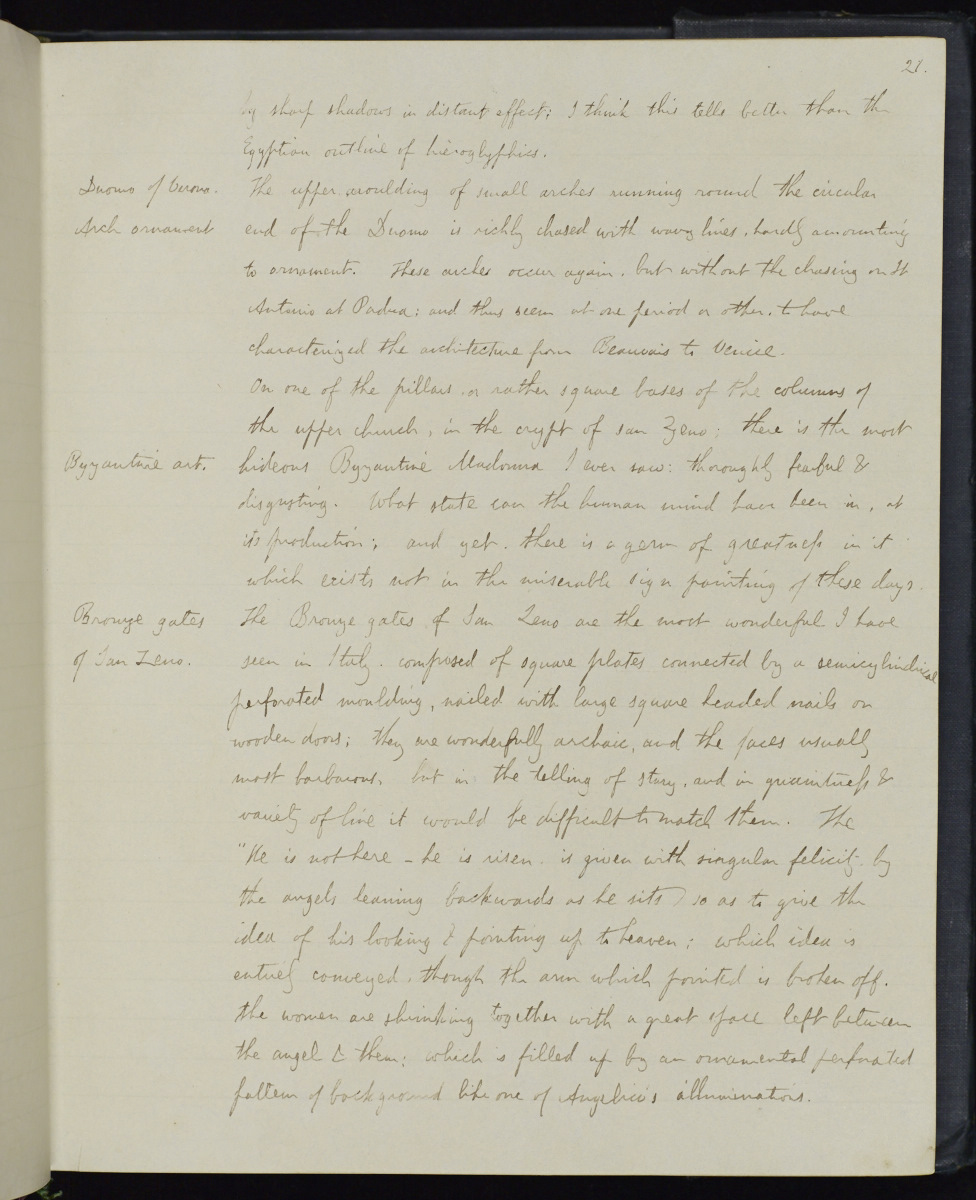 21.
by sharp shadows in distant effect; I think this tells better than the
Egyptian outline of hieroglyphics.
Duomo of Verona.
Arch ornament
The upper moulding of small arches running round the circular
end of the Duomo is richly chased with wavy lines, hardly amounting
to ornament. These arches occur again, but without the chasing on St
Antonio at Padua; and thus seem at one period or other, to have
characterized the architecture from Beauvais to Venice.
On one of the pillars, or rather square bases of the columns of
the upper church, in the crypt of San Zeno; there is the most
Byzantine art.
hideous Byzantine Madonna I ever saw: thoroughly fearful &
disgusting. What state can the human mind have been in, at
its production; and yet, there is a germ of greatness in it
which exists not in the miserable sign painting of these days.
Bronze gates
of San Zeno.
The Bronze gates of San Zeno are the most wonderful I have
seen in Italy. composed of square plates connected by a semicylindrical
perforated moulding, nailed with large square headed nails on
wooden doors; they are wonderfully archaic, and the faces usually
most barbarous, but in the telling of story, and in quaintness &
variety of line it would be difficult to match them. The
"He is not here – he is risen. is given with singular felicity by
the angels leaning backwards as he sits) so as to give the
idea of his looking & pointing up to heaven; which idea is
entirely conveyed, though the arm which pointed is broken off.
the women are shrinking together with a great space left between
the angel & them; which is filled up by an ornamental perforated
pattern of background like one of Angelico's illuminations.